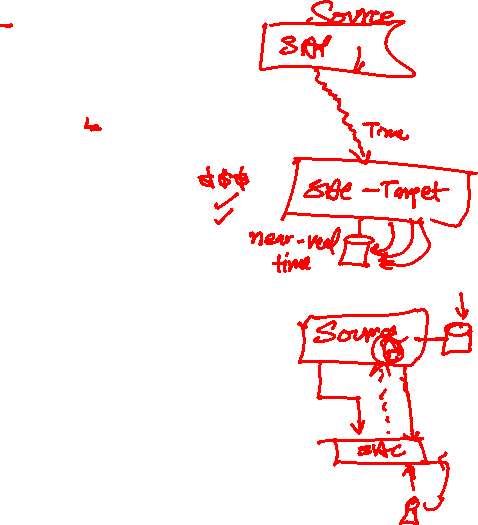 Source
SAP
Time
$$$
SAC - Target
near-real
time
Source
SAC